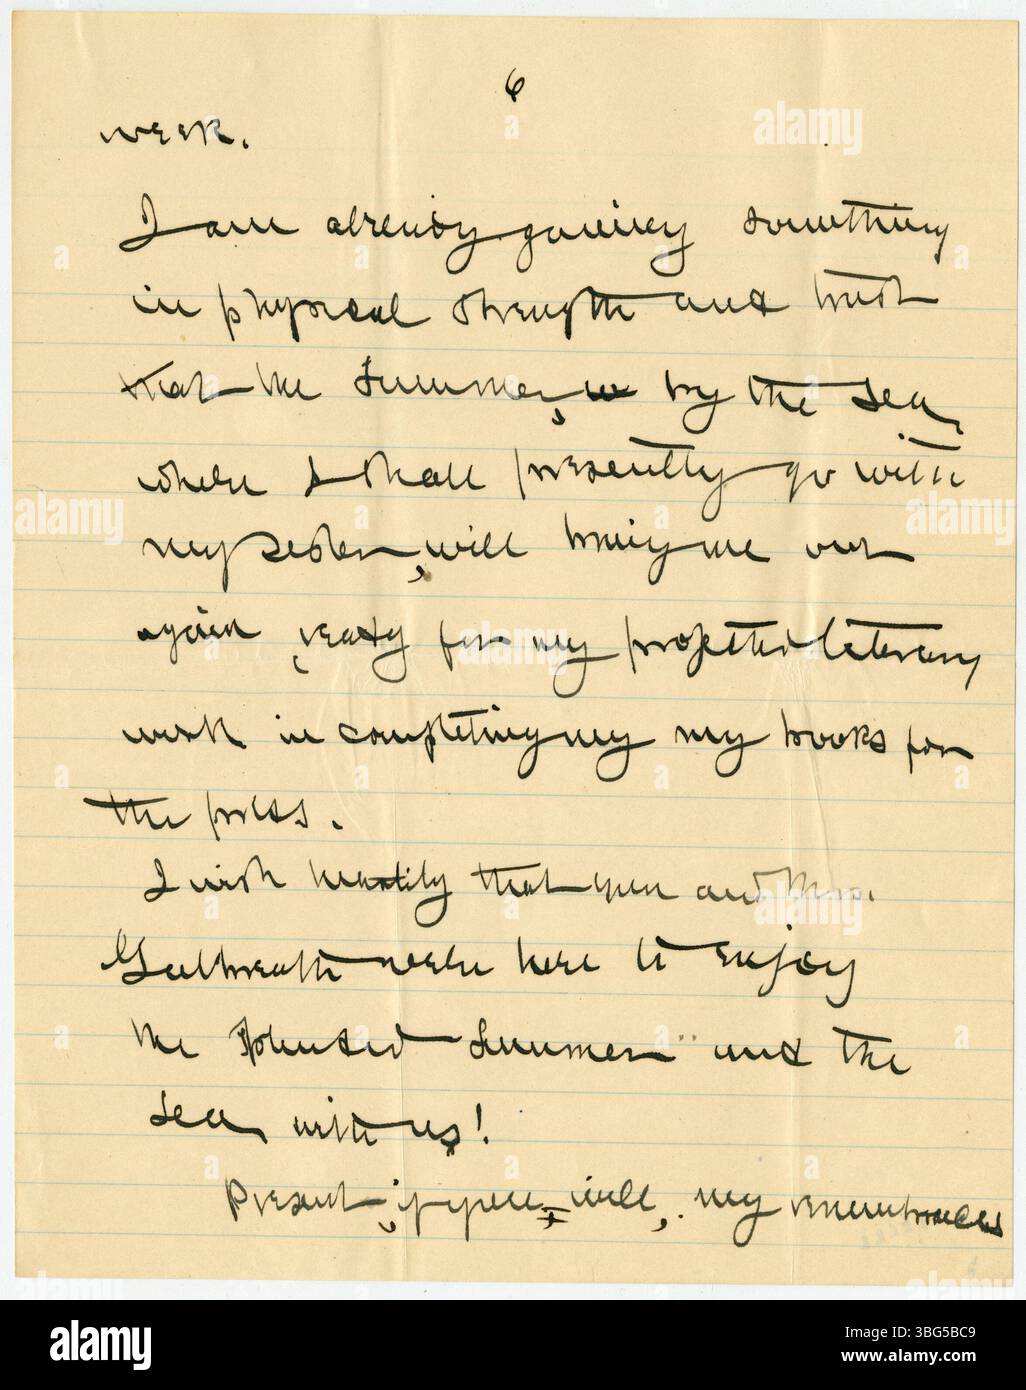 6
week.
I am already gaining something
in physical strength and trust
that the Summer, by the sea,
where I shall presently go with
my sister, will bring me out
again, ready for my projected literary
work in completing my my books for
the press.
I wish heartily that you and Mrs.
Galbreath were here to enjoy
the splendid Summer and the
sea with us!
Present, if you will, my remembrances
alamy
Image ID: 3BG5BC9
www.alamy.com